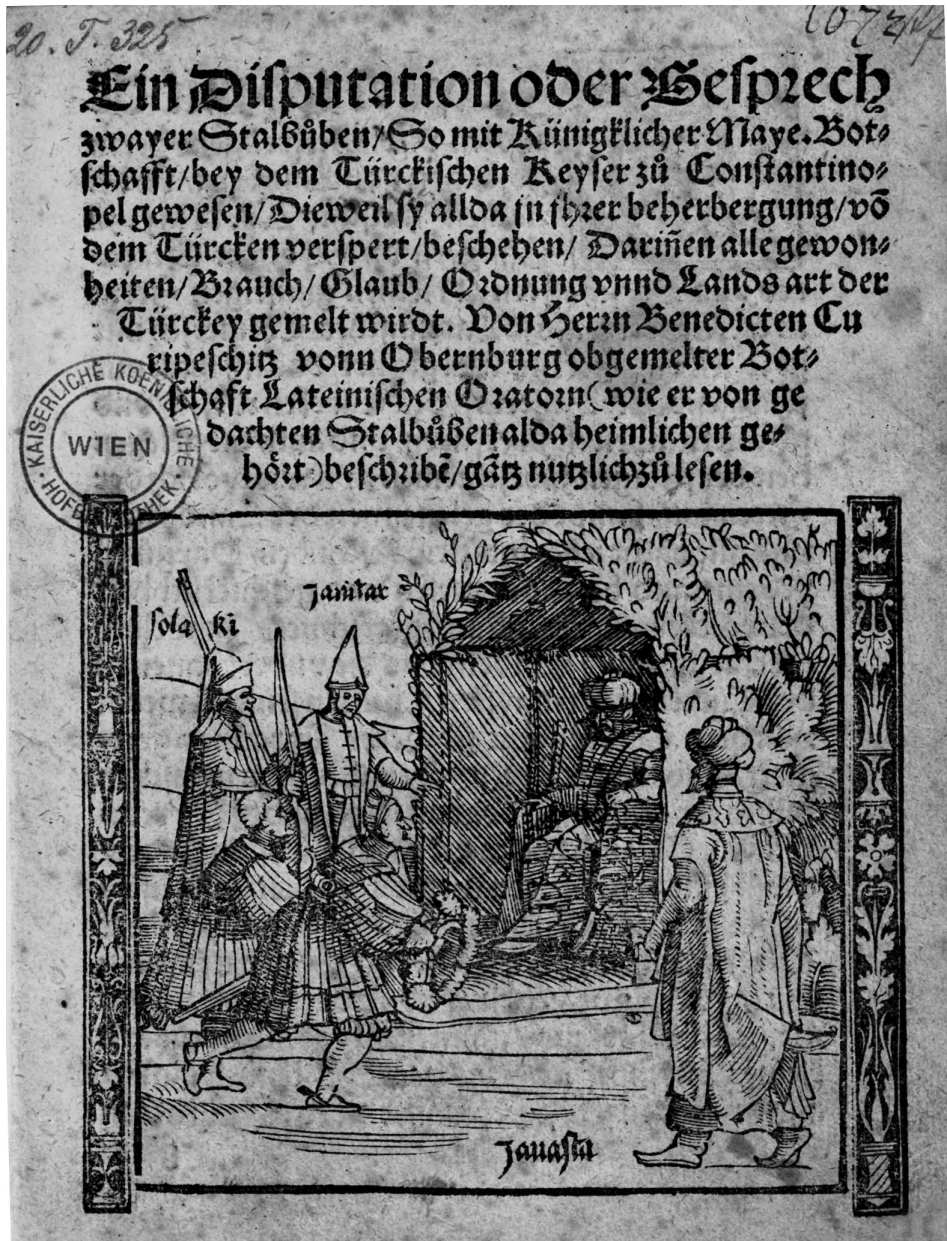 20. T. 325
Ein Disputation oder Gesprech
zwayer Stalbůben/ So mit Künigklicher Maye. Bot⸗
schafft/ bey dem Türckischen Keyser zů Constantino⸗
pel gewesen/ Dieweil sy allda jn jhrer beherbergung/ võ
dem Türcken verspert/ beschehen/ Dariñen alle gewon⸗
heiten/ Brauch/ Glaub/ Ordnung vnnd Lands art der
Türckey gemelt wirdt. Von Herrn Benedicten Cu
ripeschitz vonn Obernburg obgemelter Bot⸗
schaft Lateinischen Oratorn (wie er von ge
dachten Stalbůben alda heimlichen ge⸗
hört) beschribẽ/ gãtz nutzlich zů lesen.
KAISERLICHE KOENIGLICHE
WIEN
Janitar
sola ki